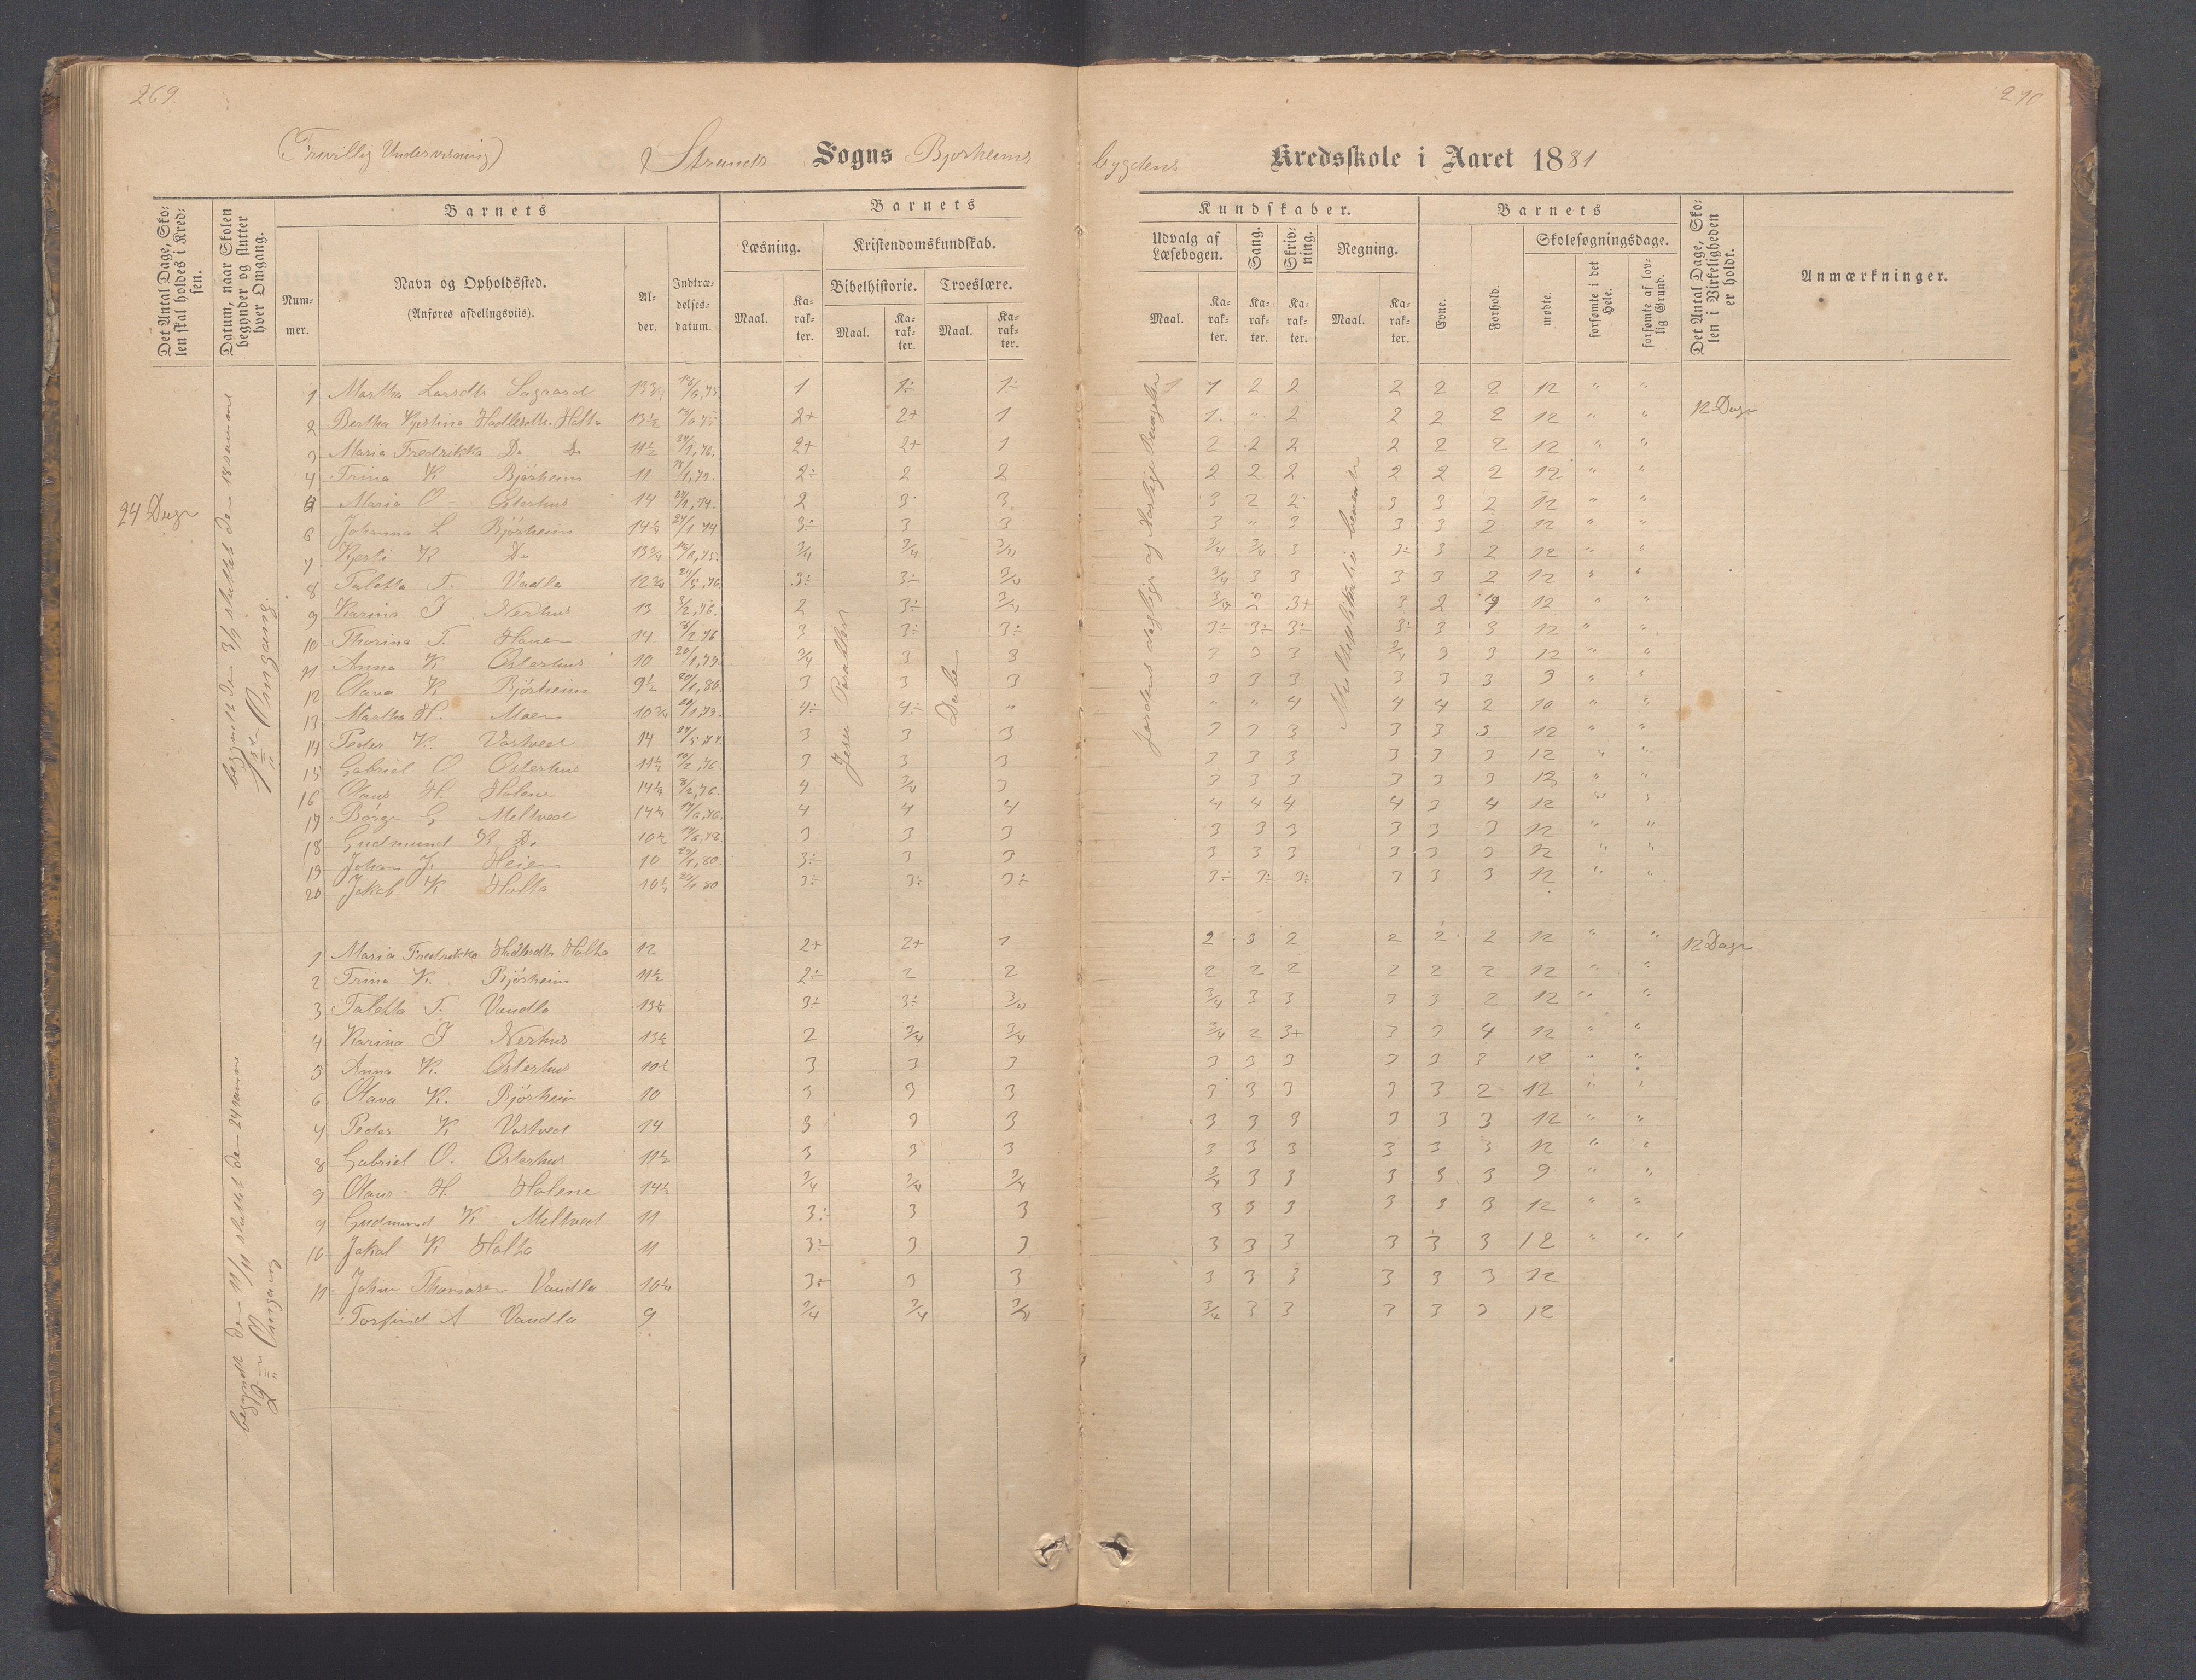 269.
270
(Frivillig Undervisning)
Strands Sogns Bjørheims
bygdens Kredsskole i Aaret 1881
Det Antal Dage, Skolen skal holdes i Kredsen.
Datum, naar Skolen begynder og slutter hver Omgang.
Barnets
Nummer.
Navn og Opholdssted.
(Anføres afdelingsviis).
Alder.
Indtrædelsesdatum.
Barnets
Læsning.
Kristendomskundskab.
Bibelhistorie.
Troeslære.
Maal.
Karakter.
Maal.
Karakter.
Maal.
Karakter.
Kundskaber.
Udvalg af Læsebogen.
Sang.
Skrivning.
Regning.
Maal.
Karakter.
Karakter.
Karakter.
Maal.
Karakter.
Barnets
Evne.
Forhold.
Skolesøgningsdage.
mødte.
forsømte i det Hele.
forsømte af lovlig Grund.
Det Antal Dage, Skolen i Virkeligheden er holdt.
Anmærkninger.
24 Dage
begyndte den 3/1 sluttet den 18 samme
1ste Omgang.
Jesu Parabler
Daabe
1 Martha Larsdtr 13 3/4 1 1÷ 1÷ 1 2 2 2 2 2 12 " " 12 Dage
2 Bertha Kjestina Holta 13 1/2 2+ 2+ 1 1. " 2 2 2 2 12 " "
3 Maria Fredrikka Do Do 11 1/2 24/1,76. 2+ 2+ 1 2 2 2 2 2 2 12 " "
4 Trina K Bjørheim 11 2÷ 2 2 2 2 2 2 2 2 12 " "
5 Maria O Østerhus 14 2 3 3 3 2 2 3 3 2 12 " "
6 Johanna L Bjørheim 14 1/4 3÷ 3 3 3 " 3 3 3 2 12 " "
7 Kjesti K Do 13 3/4 3/4 3/4 3/4 3/4 3/4 3 3÷ 3 2 12 " "
8 Taletta T. Vadla 12 3/4 3÷ 3÷ 3/4 3/4 3 3 3 3 2 12 " "
9 Karina I Nerhus 13 2 3÷ 3/4 3/4 2 3+ 3 2 12 " "
10 Thorina T. 14 3 3÷ 3÷ 3÷ 3÷ 3÷ 3÷ 3 3 12 " "
11 Anna K Østerhus 10 3/4 3 3 3 3 3 3/4 3 3 12 " "
12 Olava K Bjørheim 9 1/2 3 3 3 3 3 3 3 3 3 9 " "
13 Martha H. Moen 10 3/4 4÷ 4÷ " " " 4 4 4 2 10 " "
14 Peder K. Vastveit 14 3 3 3 3 3 3 3 3 3 12 " "
15 Gabriel O Østerhus 11 1/2 3 3 3 3 3 3 3 3 3 12 " "
16 Olaus H. Holene 14 1/4 4 3/4 3 3 3 3 3 3 3 12 " "
17 Børge G Meltveit 14 1/4 4 4 4 4 4 4 4 3 4 12 " "
18 Gudmund K Do 10 1/2 3 3 3 3 3 3 3 3 3 12 " "
19 Johan J. Heien 10 3÷ 3 3 3 3 3 3 3 3 12 " "
20 Jakob K Holta 10 1/4 3÷ 3÷ 3÷ 3÷ 3÷ 3÷ 3 3 3 12 " "
begyndt den 11/11 sluttet den 24 samme
2den Omgang
1 Maria Fredrikka Holta 12 2+ 2+ 1 2 3 2 2 2 2 12 " " 12 Dage
2 Trina K. Bjørheim 11 1/2 2÷ 2 2 2 2 2 2 2 2 12 " "
3 Taletta T. Vaudla 13 1/4 3÷ 3÷ 3/4 3/4 3 3 3 3 2 12 " "
4 Karina I Nerhus 13 1/2 2 3/4 3/4 3/4 2 3+ 3 3 4 12 " "
5 Anna K. Østerhus 10 1/2 3 3 3 3 3 3 3 3 3 12 "
6 Olava K. Bjørheim 10 3 3 3 3 3 3 3 3 2 12 " "
7 Peder K Vastveit 14 3 3 3 3 3 3 3 3 3 12 " "
8 Gabriel O. Østerhus 11 1/2 3 3 3 3 3 3 3 3 3 12 " "
9 Olaus H Holene 14 1/2 3/4 3/4 3/4 3/4 3 3 3 3 3 9 " "
9 Gudmund K Meltveit 11 3÷ 3 3 3 3 3 3 3 3 12 " "
10 Jakob K Holta 11 3÷ 3 3 3 3 3 3 3 3 12 " "
11 Johan Thomasen Vaudla 10 1/4 3+ 3 3 3 3 3 3 3 3 12
Torfind A Vaudla 9 3/4 3/4 3/4 3/4 3 3 3 3 3 12